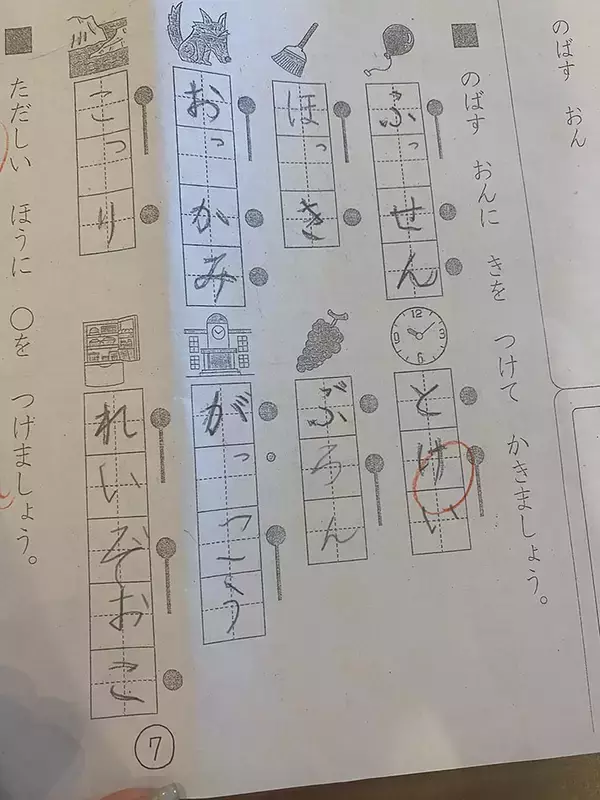 のばす おん
■ のばす おんに きを つけて かきましょう。
ふっせん
ほっき
おっかみ
こっり
12
3
6
9
とけい
ぶろん
がっこう
れいぞおこ
■ ただしい ほうに ○を つけましょう。
⑦